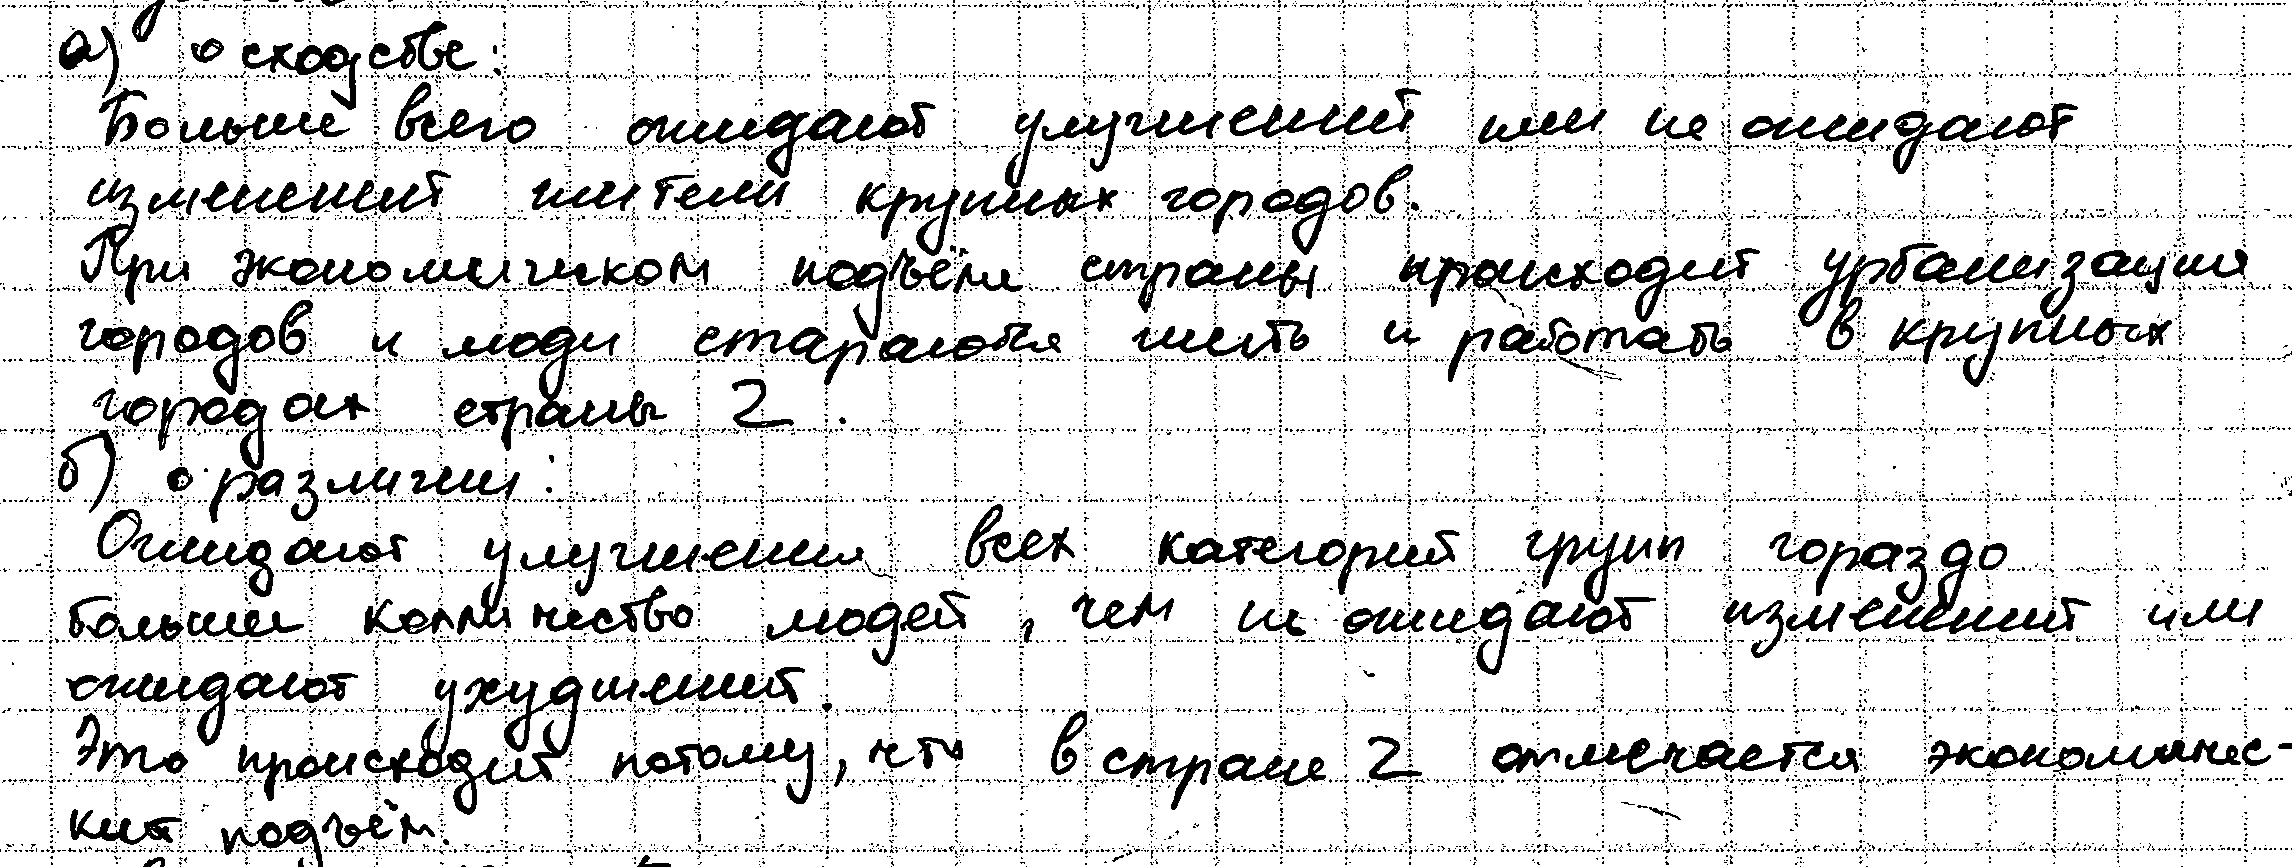 а) о сходстве:
Больше всего ожидают улучшений или не ожидают
изменений жители крупных городов.
При экономическом подъёме страны происходит урбанизация
городов и люди стараются жить и работать в крупных
городах страны 2.
б) о различии:
Ожидают улучшения всех категорий групп гораздо
больше колличество людей, чем не ожидают изменений или
ожидают ухудшений.
Это происходит потому, что в стране 2 отмечается экономичес-
кий подъём.